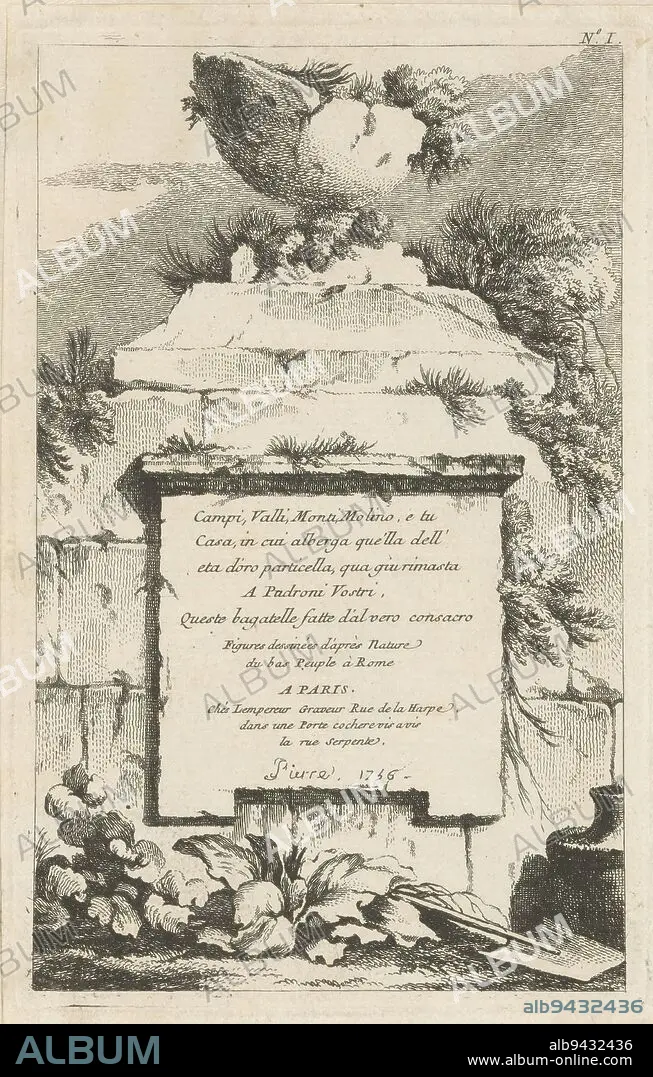 Nº I.
Campi, Valli, Monti, Molino, e tu
Casa, in cui alberga que'lla dell'
eta d'oro particella, qua giu rimasta
A Padroni Vostri,
Queste bagatelle fatte d'al vero consacro
Figures dessinées d'après Nature
du bas Peuple à Rome
A PARIS.
Chés Lempereur Graveur Rue de la Harpe
dans une Porte cochere vis avis
la rue Serpente.
Pierre. 1756
ALBUM
alb9432436
ALBUM
alb9432436
www.album-online.com